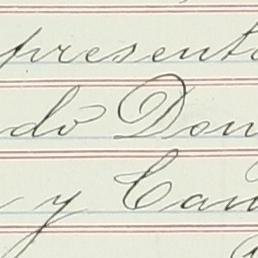 presenta
do Don
y Can